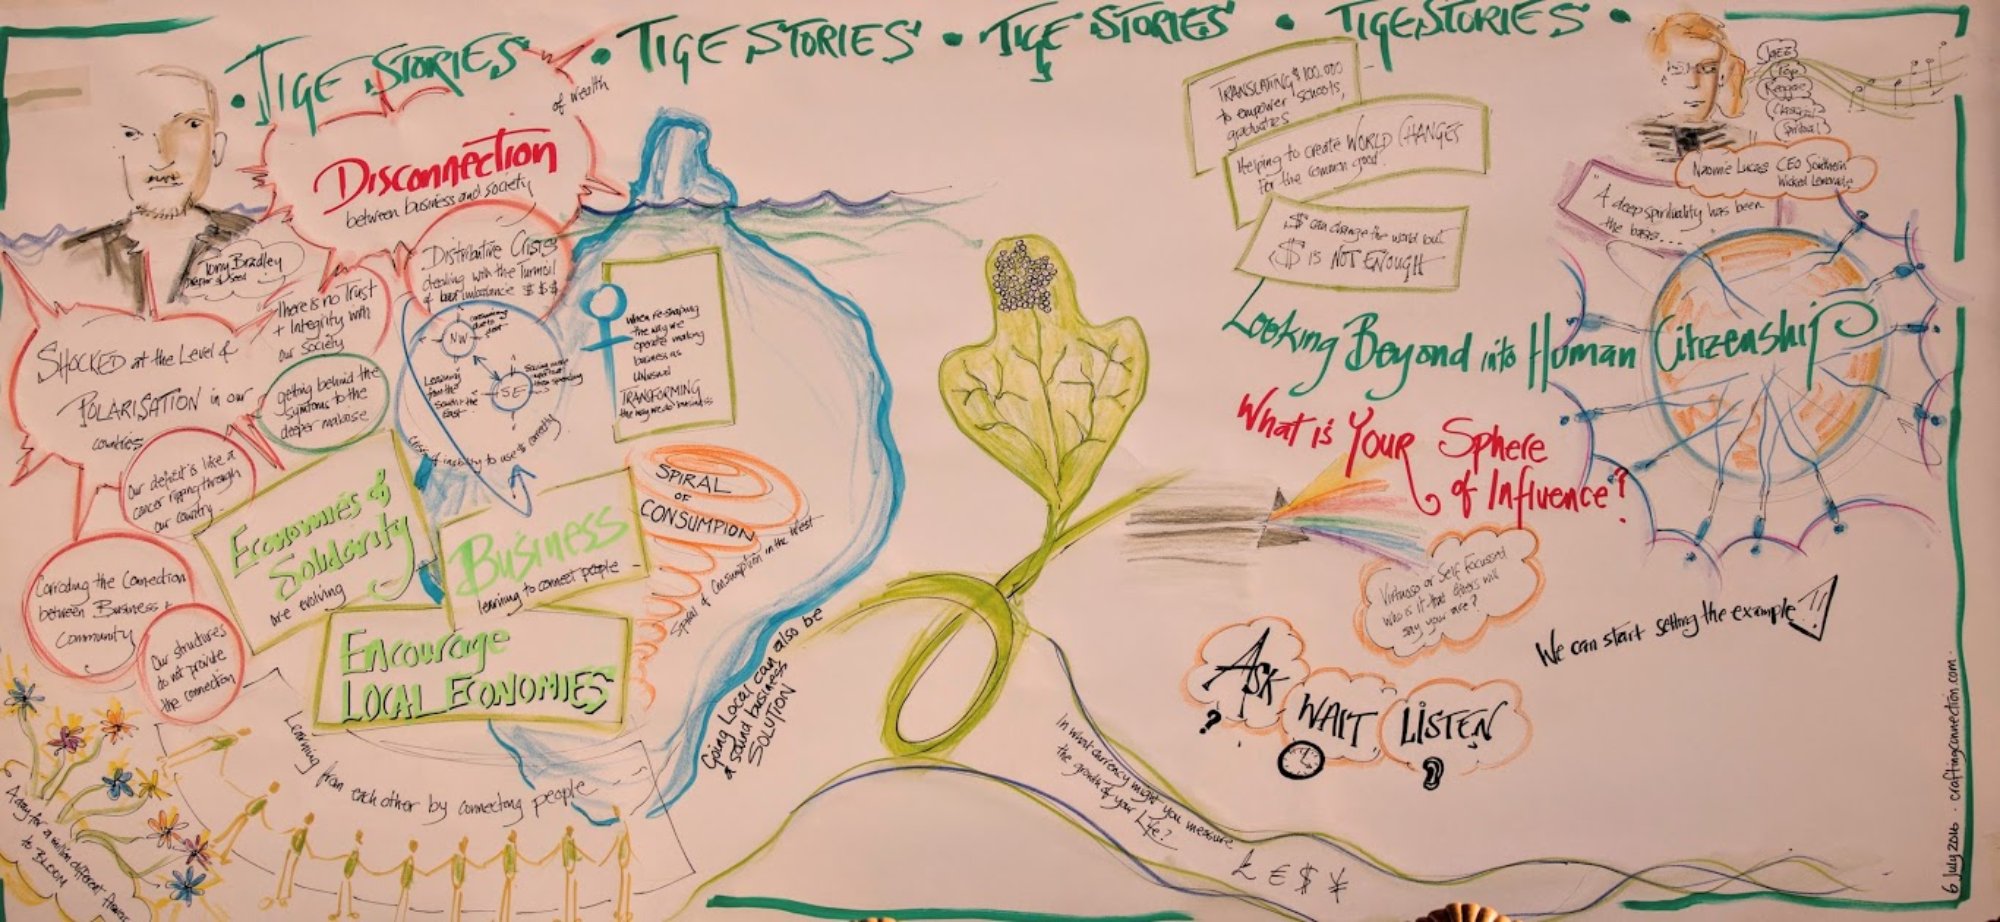 • TIGE STORIES • TIGE STORIES • TIGE STORIES • TIGE STORIES •
of wealth
Disconnection
between business and society
Tony Bradley
Distributive Crises
dealing with the Turmoil
of
imbalance $ $ $
There is no Trust
+ Integrity with
our Society
SHOCKED at the Level of
POLARISATION in our
countries
getting behind the
symptoms to the
deeper malaise
Our deficit is like a
cancer ripping through
our country
Corroding the Connection
between Business +
Community
Our structures
do not provide
the connection
NW
SE
Learning
from the
South + the
East
Crisis of inability to use $ correctly
When re-shaping
the way we
operate making
business as
UNUSUAL
TRANSFORMING
the way we do business
Economies of
Solidarity
are evolving
Business
learning to connect people
Encourage
LOCAL ECONOMIES
SPIRAL
OF
CONSUMPION
Spiral of Consumption in the West
Going Local can also be
a sound business
SOLUTION
Learning from each other by connecting people
A day for a million different flowers
to BLOOM
TRANSLATING $100.000
to empower schools,
graduates
Helping to create WORLD CHANGES
For the common good.
$ can change the world but
$ is NOT ENOUGH
Jazz
Pop
Reggae
Classical
Spiritual
Naomie Lucas CEO Southern
Wicked Lemonade
"A deep spirituality has been
the basis...
Looking Beyond into Human Citizenship
What is Your Sphere
of Influence?
Virtuoso or Self Focussed
Who is it that others will
say your are?
We can start setting the example!!
ASK
?
WAIT
LISTEN
?
In what currency might you measure
the growth of your Life?
£ € $ ¥
6 July 2016 · craftingconnection.com ·